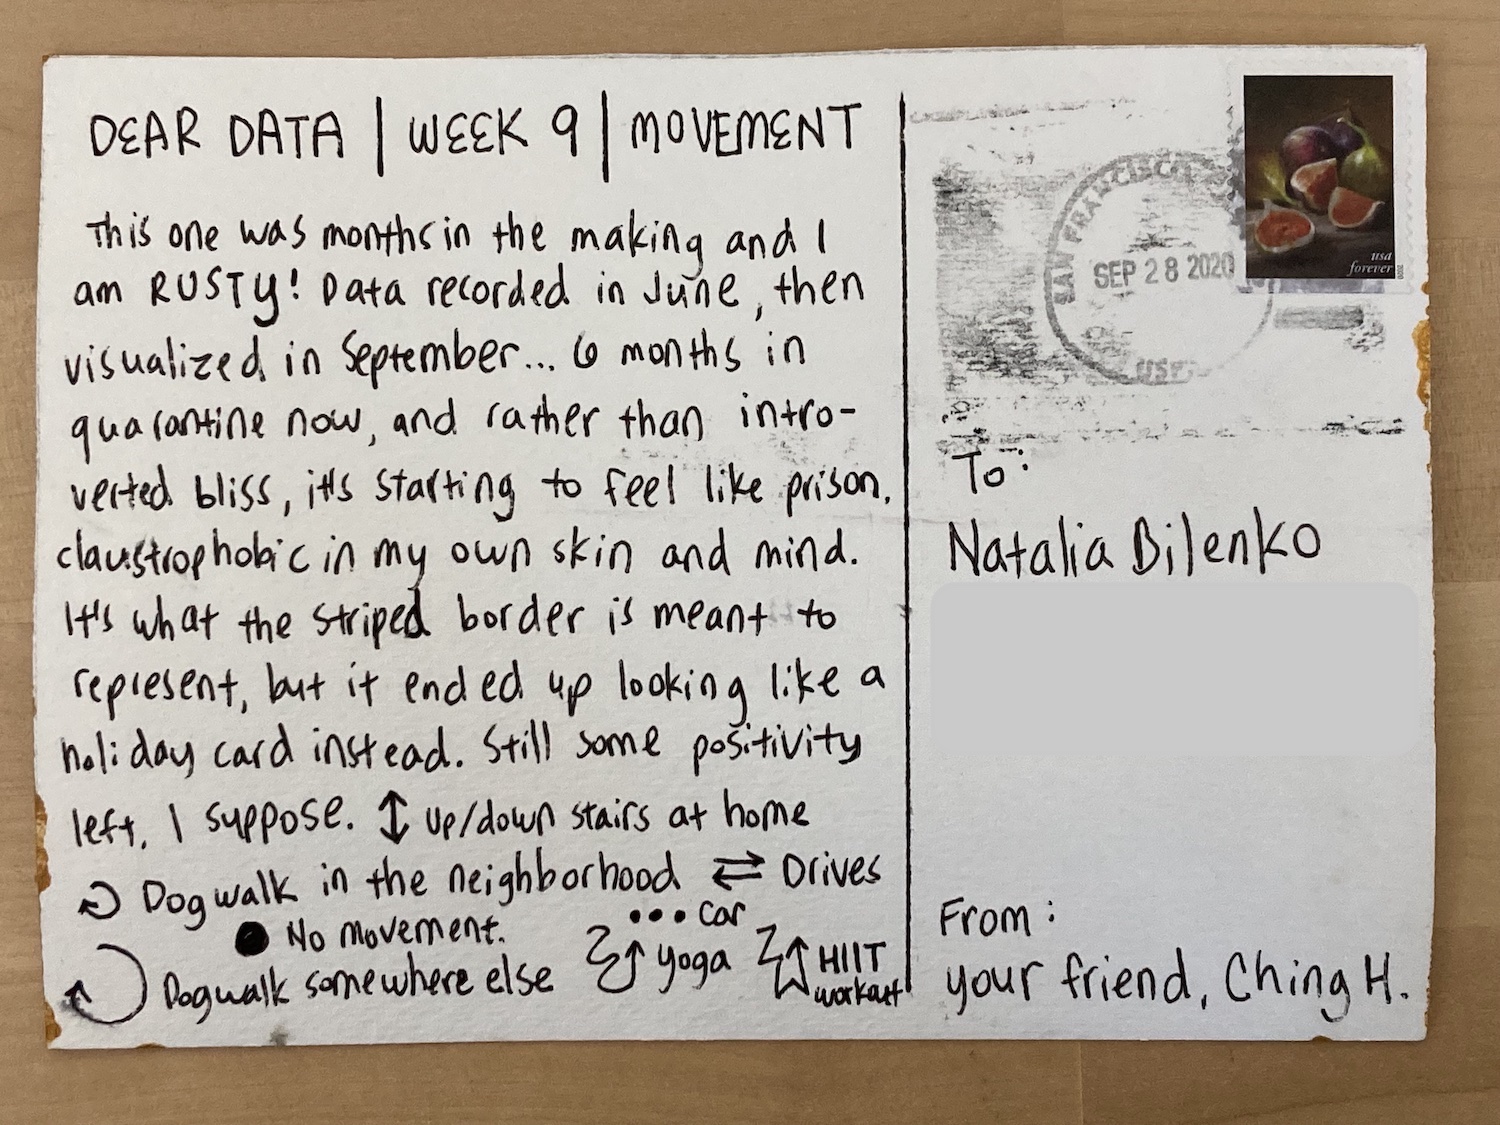 DEAR DATA | WEEK 9 | MOVEMENT
This one was months in the making and I
am RUSTY! Data recorded in June, then
visualized in September... 6 months in
quarantine now, and rather than intro-
verted bliss, it's starting to feel like prison,
claustrophobic in my own skin and mind.
It's what the striped border is meant to
represent, but it ended up looking like a
holiday card instead. Still some positivity
left, I suppose. ↕ up/down stairs at home
↻ Dogwalk in the neighborhood ⇄ Drives
● No movement. ••• car
Dogwalk somewhere else yoga HIIT
workout
SAN FRANCISCO
SEP 28 2020
usa
forever
2020
To:
Natalia Bilenko
From:
your friend, Ching H.